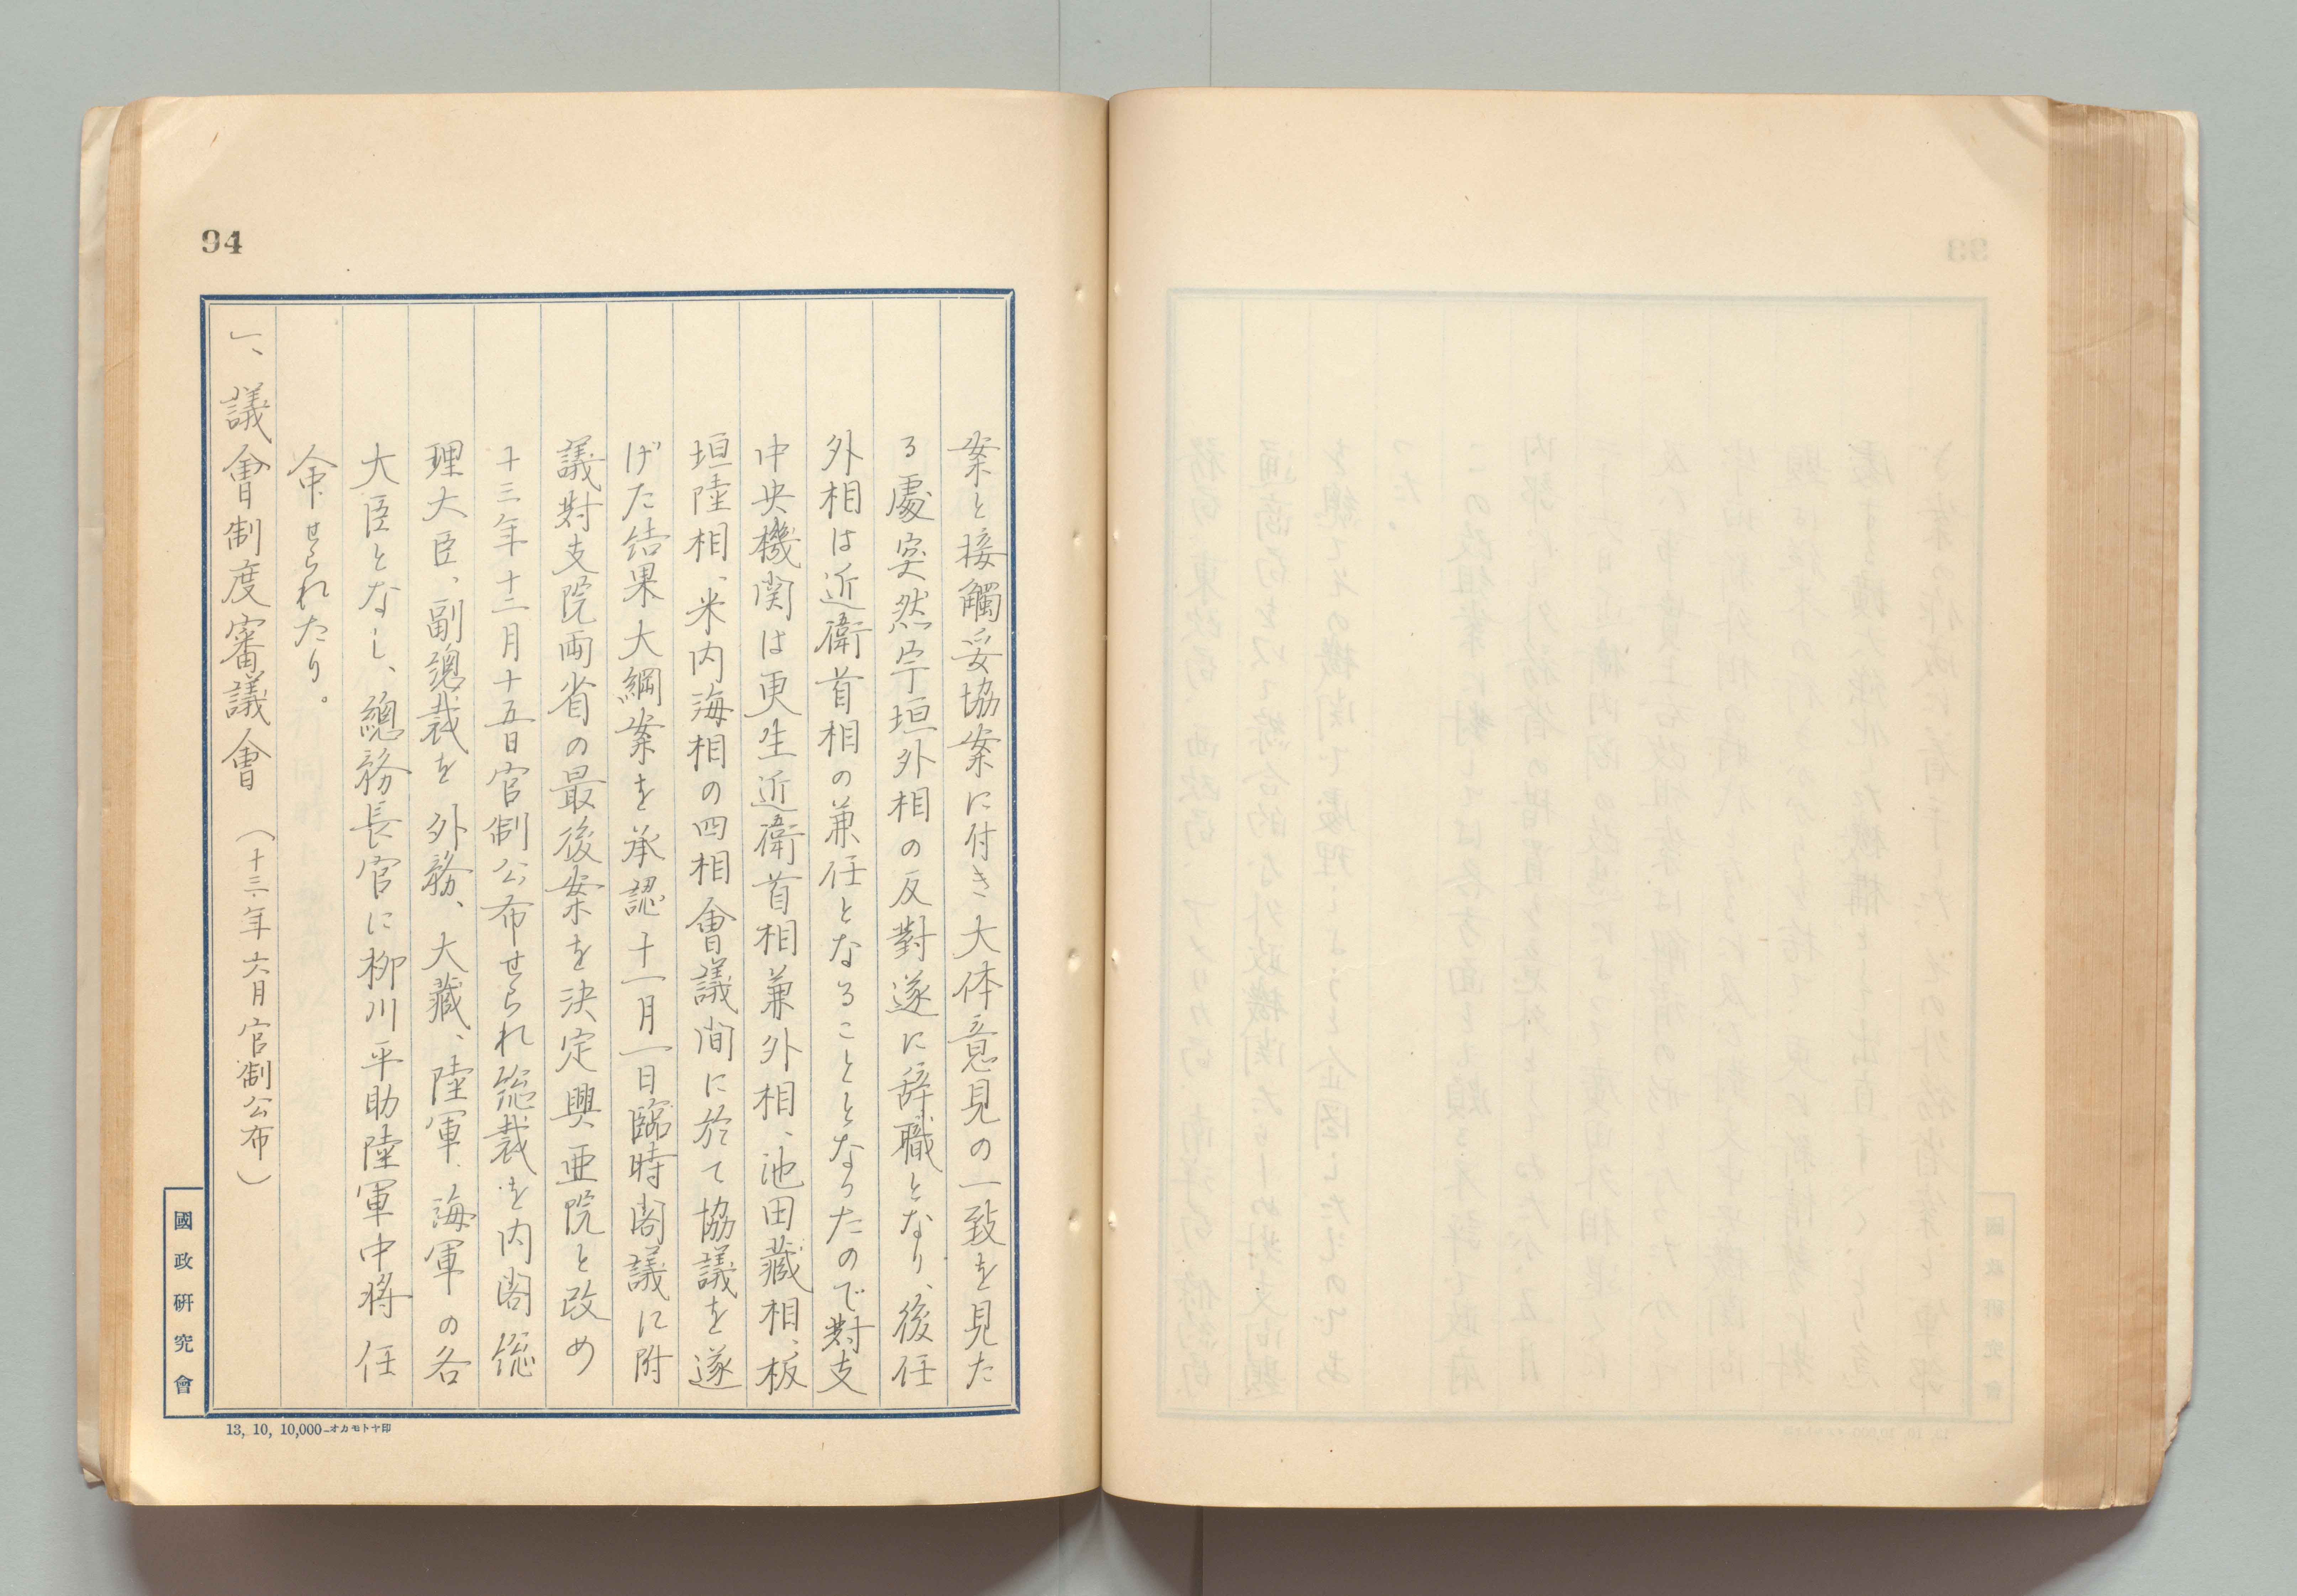 94
案と接觸妥協案に付き大体意見の一致を見た
る處突然宇垣外相の反對遂に辞職となり、後任
外相は近衛首相の兼任となることとなつたので對支
中央機関は更生近衛首相兼外相、池田藏相、板
垣陸相、米内海相の四相會議間に於て協議を遂
げた結果大綱案を承認十一月一日臨時閣議に附
議對支院両省の最後案を決定興亜院と改め
十三年十二月十五日官制公布せられ総裁を内閣総
理大臣、副總裁を外務、大藏、陸軍、海軍の各
大臣となし、總務長官に柳川平助陸軍中将任
命せられたり。
一、議會制度審議會 （十三年六月官制公布）
國政研究會
13, 10, 10,000-オカモトヤ印